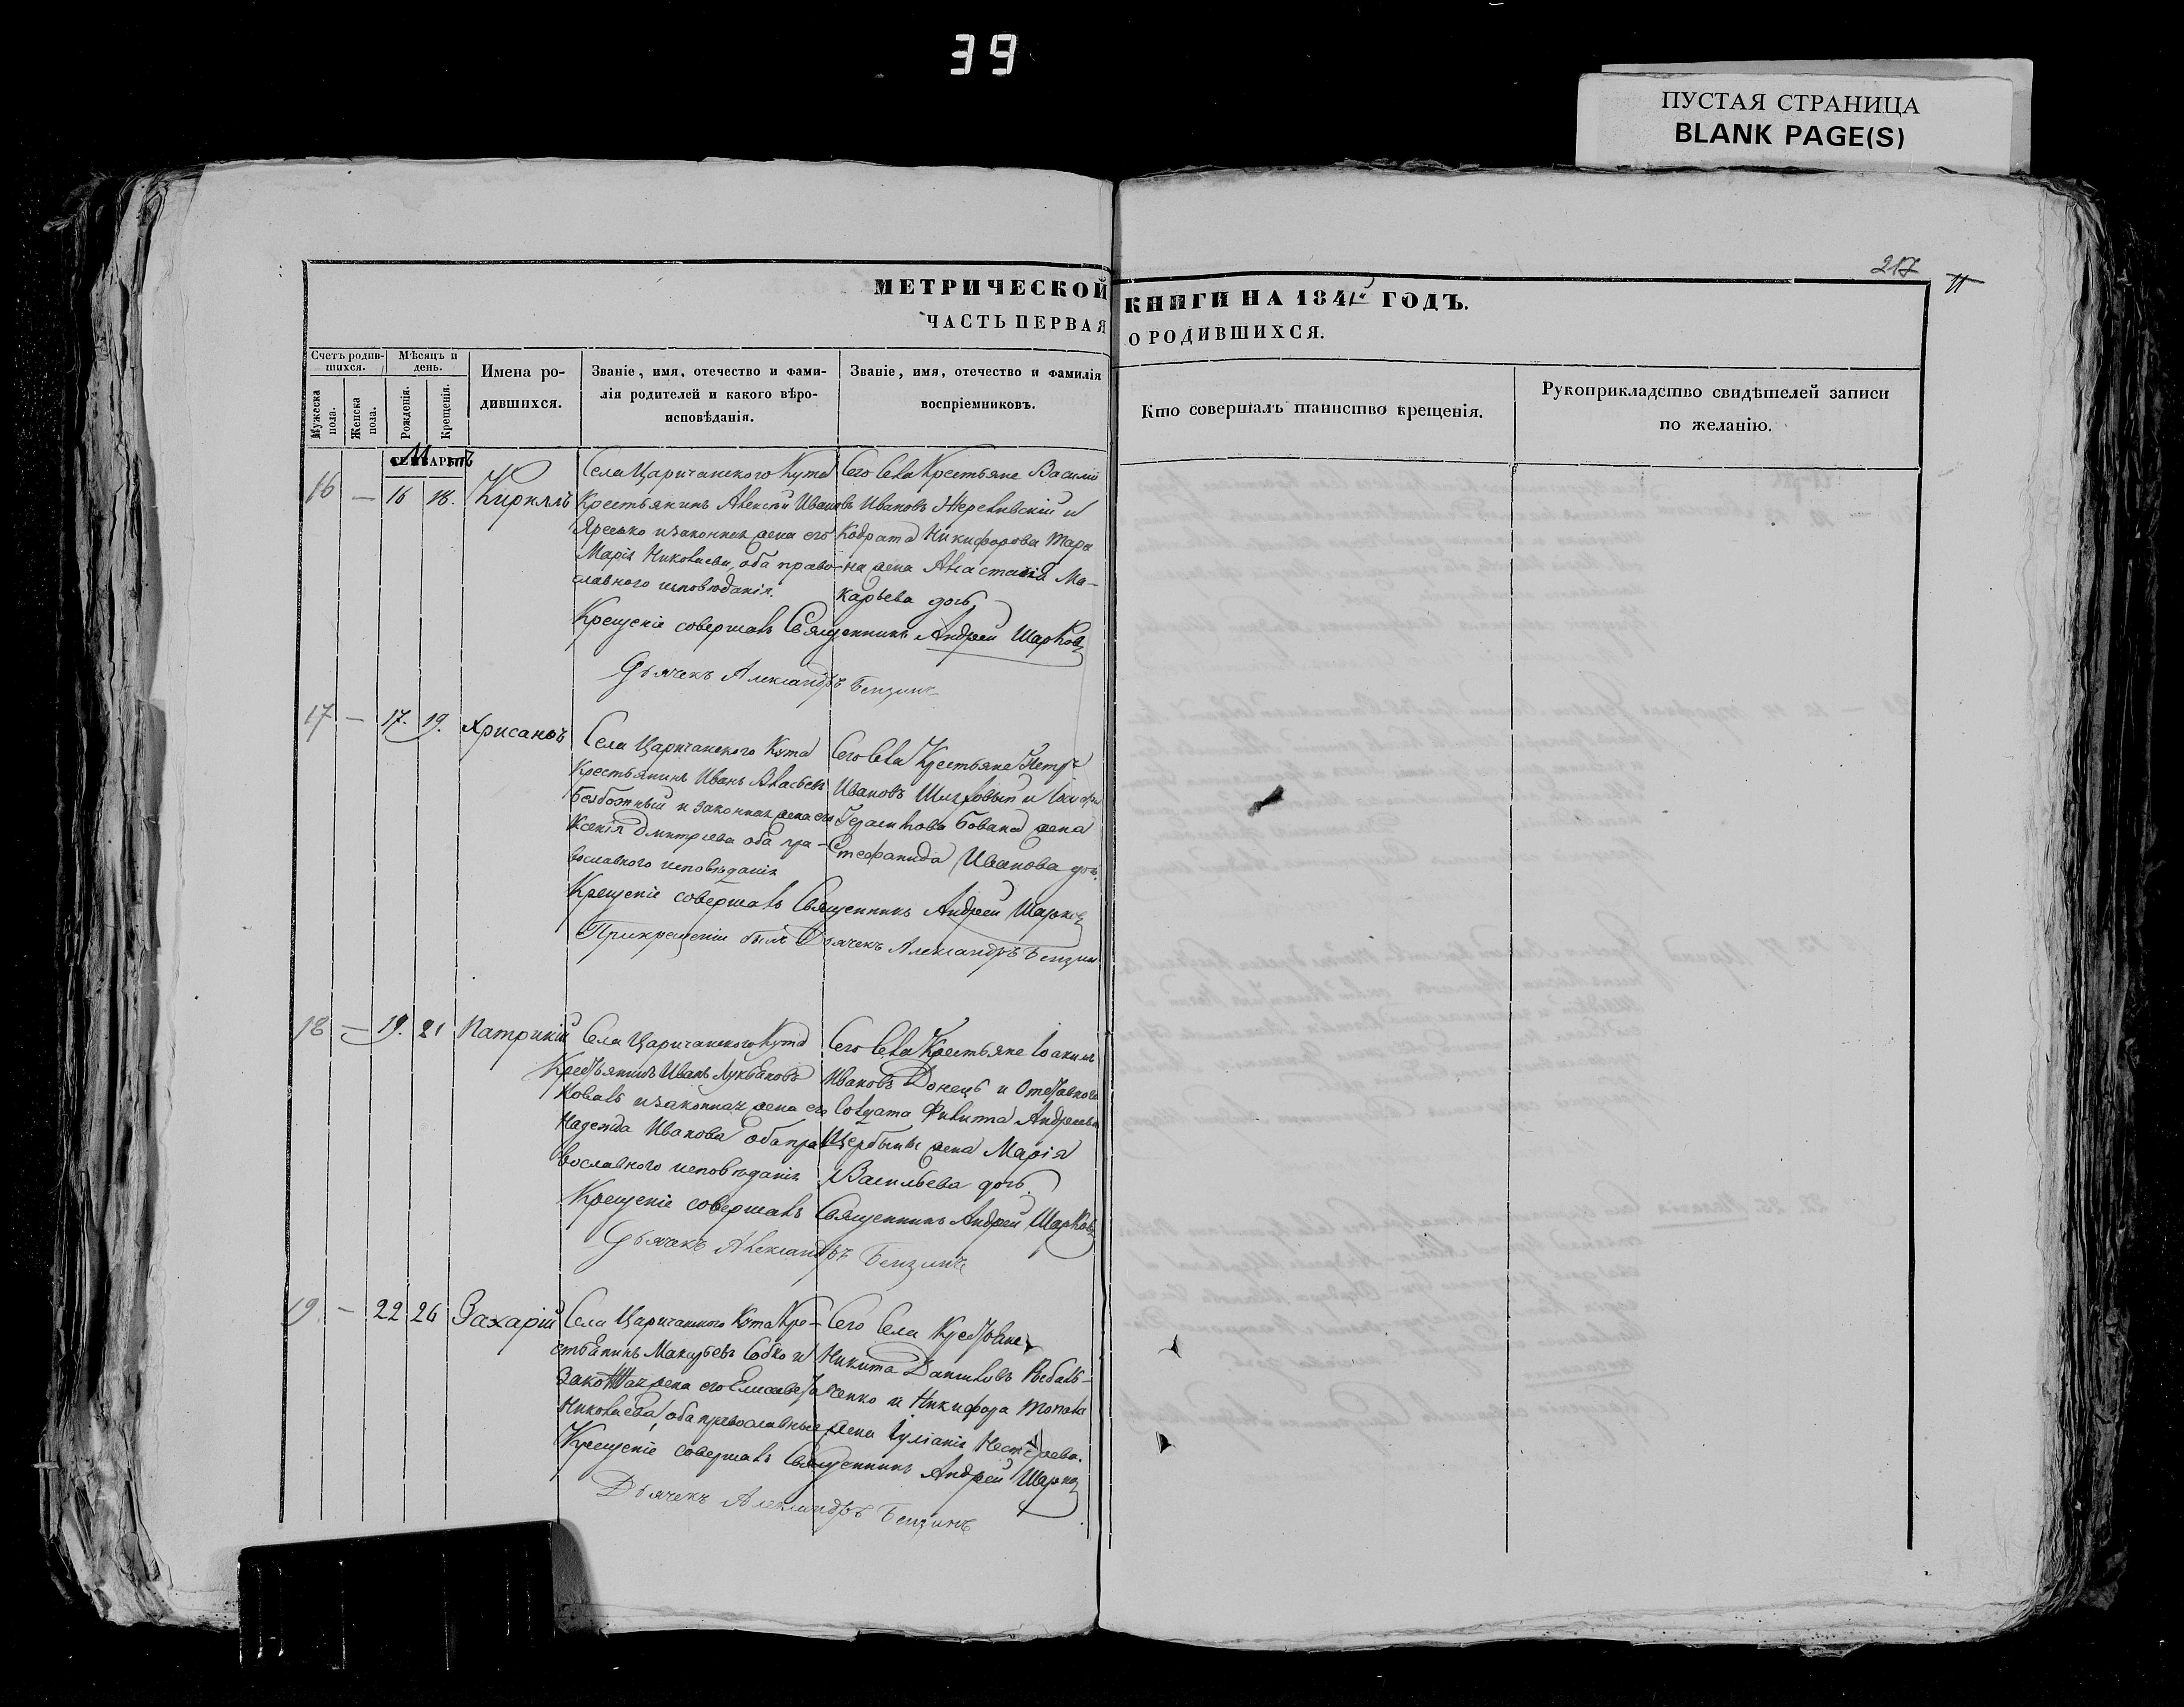 39
ПУСТАЯ СТРАНИЦА
BLANK PAGE(S)
217
МЕТРИЧЕСКОЙ КНИГИ НА 184 ГОДЪ.
ЧАСТЬ ПЕРВАЯ О РОДИВШИХСЯ.
Счетъ родив-
шихся.
Мужеска пола.
Женска пола.
Мѣсяцъ и
день.
Рожденія.
Крещенія.
Имена ро-
дившихся.
Званіе, имя, отечество и фами-
лія родителей и какого вѣро-
исповѣданія.
Званіе, имя, отечество и фамилія
воспріемниковъ.
Кто совершалъ таинство крещенія.
Рукоприкладство свидѣтелей записи
по желанію.
Мартъ
16 — 16 18. Кириллъ
Села Царичанского Кута
Крестьянинъ Алексѣй Ивановъ
Яресько и законная жена его
Марія Николаева, оба право-
славного исповѣданія.
Сего Села Крестьяне Василій
Ивановъ Жеревскій и
Кодрата Никифорова
жена Анастасія Ма-
карьева дочь
Крещеніе совершалъ Священникъ Андрей Шарков
Дьячекъ Александръ Бензинъ
17 — 17. 19. Хрисанѳъ
Села Царичанского Кута
Крестьянинъ Иванъ Власьевъ
Безбожный и законная жена его
Ксенія Дмитріева оба пра-
вославного исповѣданія
Сего Села Крестьяне Петръ
Ивановъ и
Герасимова жена
Стефанида Иванова дочь.
Крещеніе совершалъ Священникъ Андрей Шарков
При крещеніи былъ Дьячекъ Александръ Бензин
18 — 19. 21 Патрикій
Села Царичанского Кута
Крестьянинъ Иванъ Лукьяновъ
Коваль и законная жена его
Надежда Иванова оба пра
вославного исповѣданія
Сего Села Крестьяне Іоакимъ
Ивановъ Донецъ и Отставного
Солдата Филиппа Андреева
Щербины жена Марія
Васильева дочь.
Крещеніе совершалъ Священникъ Андрей Шарков
Дьячекъ Александръ Бензинъ
19. — 22 26 Захарій
Села Царичанского Кута Кре-
стьянинъ Макарьевъ Собко и
Законная жена его Елисавета
Николаева, оба православные
Сего Села Крестьяне
Никита Даниловъ Рыбаль-
ченко и Никифора
жена Іуліанія Нестерова.
Крещеніе совершалъ Священникъ Андрей Шарков
Дьячекъ Александръ Бензинъ